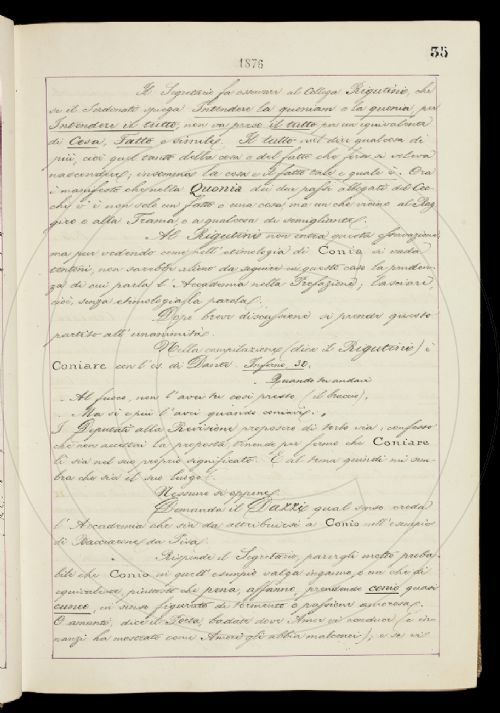 35
1876
Il Segretario fa osservare al Collega Rigutini, che
se il Sordonati spiega Intendere la quoniam o la quonia, per
Intendere il tutto, non va preso il tutto per un equivalente
di Cosa, Fatto e simili. Il tutto vuol dire qualcosa di
più, cioè quel tanto della cosa e del fatto che forse si voleva
nascondere; insomma la cosa e il fatto tale e quale è. Ora
è manifesto che nella Quonia dei due passi allegati dal Cec-
chi, vi è non solo un fatto o una cosa, ma un che vicino al Rag
giro e alla Trama, o a qualcosa di somigliante.
Al Rigutini non entra questa spiegazione,
ma pur vedendo come nell'etimologia di Conia si vada
tentoni, non sarebbe alieno da seguire in questo caso la pruden-
za di cui parla l'Accademia nella Prefazione; lasciare,
cioè, senza etimologia la parola.
Dopo breve discussione si prende questo
partito all'unanimità.
Nella compilazione (dice il Rigutini) è
Coniare con l'es. di Dante. Inferno 30.
. Quando tu andavi
. Al fuoco, non l'avei tu così presto (il braccio);
. Ma sì e più l'avei quando coniavi. „
I Deputati alla Revisione proposero di torlo via: confesso
che non accettai la proposta, tenendo per fermo che Coniare
lì sia nel suo proprio significato. E al tema quindi mi sem-
bra che sia il suo luogo.
Nessuno si oppone.
Domanda il Dazzi qual senso creda
l'Accademia che sia da attribuirsi a Conio nell'esempio
di Bacciarone da Pisa.
Risponde il Segretario, parergli molto proba-
bile che Conio in quell'esempio valga inganno, o un che di
equivalente, piuttosto che pena, affanno, prendendo conio quasi
cuneo, in senso figurato di tormento o passione amorosa.
O amanti, dice il Poeta, badate dove Amor vi conduce (e in-
nanzi ha mostrato come Amore gli abbia malconci); e se vi